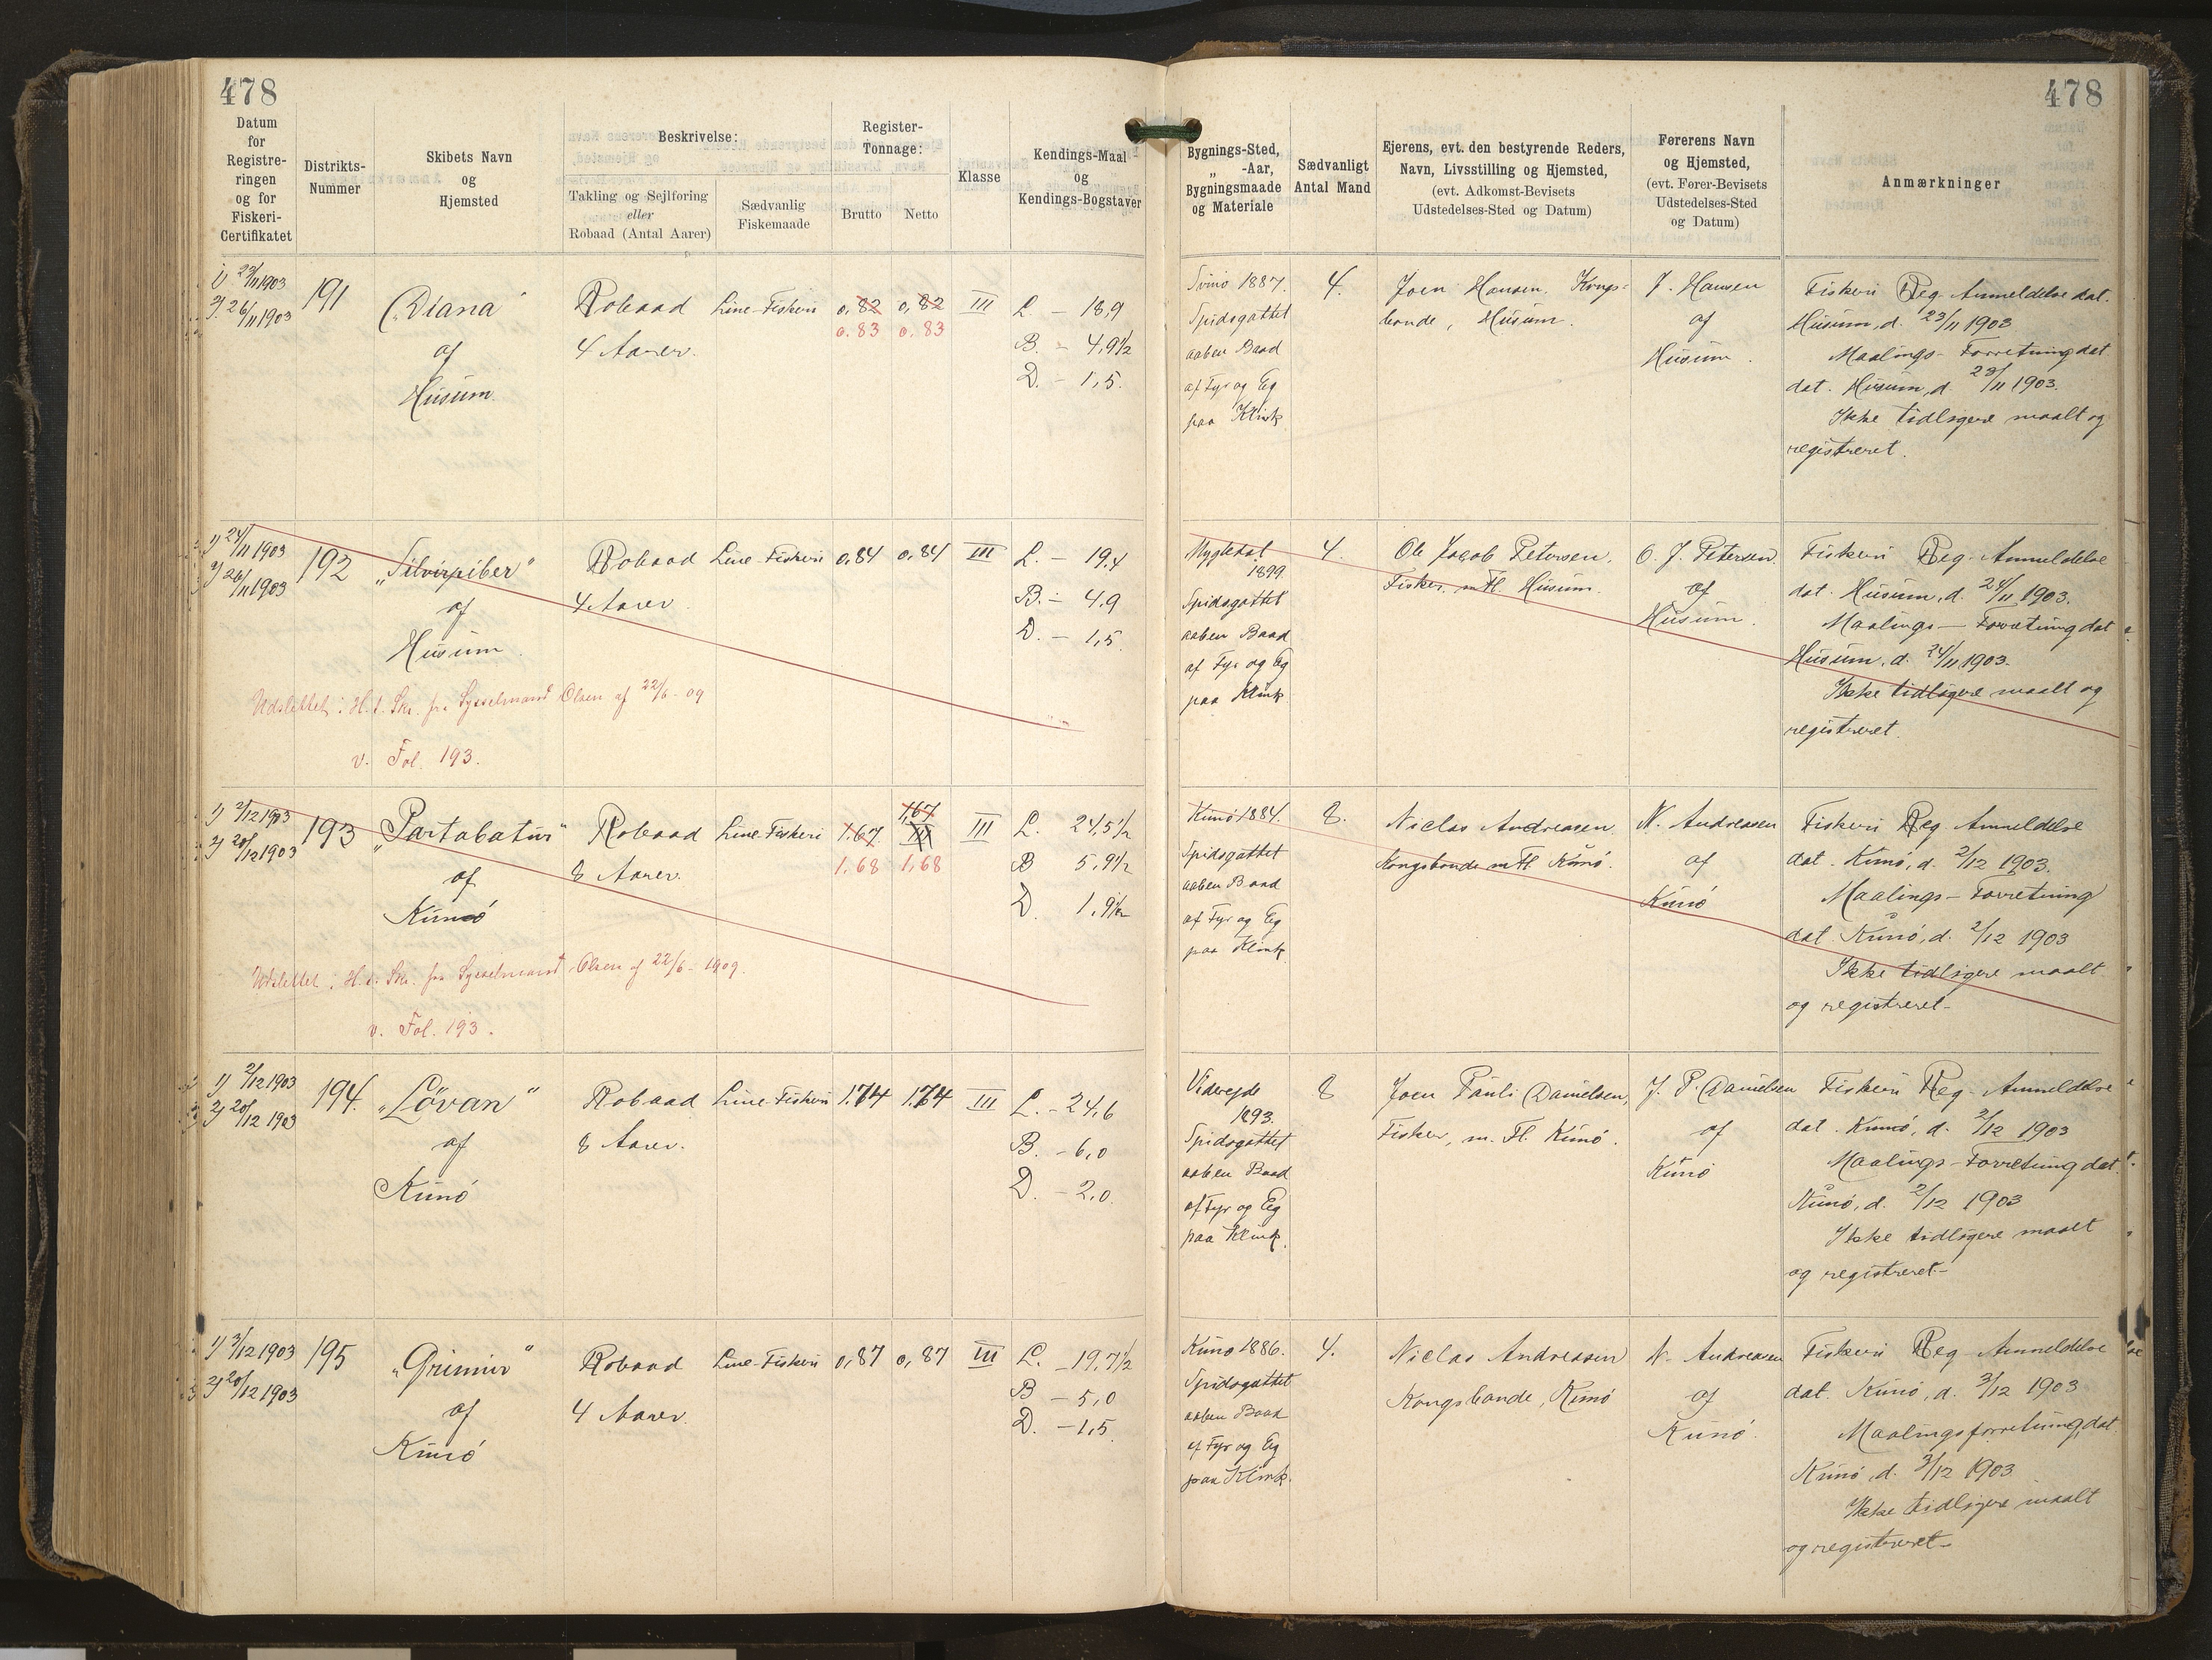 478
478
Datum for Registreringen og for Fiskeri-Certifikatet
Distrikts-Nummer
Skibets Navn og Hjemsted
Beskrivelse:
Takling og Sejlføring eller Robaad (Antal Aarer)
Sædvanlig Fiskemaade
Register-Tonnage:
Brutto
Netto
Klasse
Kendings-Maal og Kendings-Bogstaver
Bygnings-Sted, „ -Aar, Bygningsmaade og Materiale
Sædvanligt Antal Mand
Ejerens, evt. den bestyrende Reders, Navn, Livsstilling og Hjemsted, (evt. Adkomst-Bevisets Udstedelses-Sted og Datum)
Førerens Navn og Hjemsted, (evt. Fører-Bevisets Udstedelses-Sted og Datum)
Anmærkninger
1) 23/11 1903
2) 26/11 1903
191
„Diana“
af
Husum
Robaad
4 Aarer.
Line-Fiskeri
0,82 0,82
0.83 0,83
III
L – 18,9
B. – 4,9½
D. – 1,5.
Svinö 1887.
Spidsgattet
aaben Baad
af Fyr og Eg
paa Klink
4.
Joen Hansen, Kongs-
bonde, Husum.
J. Hansen
af
Husum.
Fiskeri Reg. Anmeldelse dat.
Husum, d. 23/11 1903
Maalings-Forretning dat
dat. Husum, d 23/11 1903.
Ikke tidligere maalt og
registreret.
1) 24/11 1903
2) 26/11 1903
192
af
Husum
Robaad
4 Aarer
Line-Fiskeri
0,84 0,84
III
L. – 19,4
B. – 4,9
D. – 1,5
Mygledal
1899
Spidsgattet
aaben Baad
af Fyr og Eg
paa Klink
4.
Ole Jacob Petersen,
Fisker, m Fl. Husum.
O. J. Petersen
af
Husum.
Fiskeri Reg. Anmeldelse
dat. Husum, d. 24/11 1903.
Maalings–Forretning dat
Husum, d. 24/11 1903.
Ikke tidligere maalt og
registreret.
Udslettet i H. t. Skr. fra Sysselmand Olsen af 22/6 - 09
v. Fol. 193.
1) 2/12 1903
2) 20/12 1903
193
„Partabatur“
af
Kunö
Robaad
8 Aarer
Line-Fiskeri
1.67. 1,67
III
1.68 1,68
III
L. 24,5½
B 5,9½
D. 1,9½
Kunö 1884.
Spidsgattet
aaben Baad
af Fyr og Eg
paa Klink
8.
Niclas Andreasen
Kongsbonde m Fl. Kunö.
N. Andreasen
af
Kunö
Fiskeri Reg. Anmeldelse
dat. Kunö, d. 2/12 1903.
Maalings–Forretning
dat. Kunö, d. 2/12 1903
Ikke tidligere maalt
og registreret–
Udslettet i H. t. Skr. fra Sysselmand Olsen af 22/6 - 1909.
v. Fol. 193.
1) 2/12 1903
2) 20/12 1903
194.
„Lövan“
af
Kunö
Robaad
8 Aarer.
Line-Fiskeri
1.74 1.74
III
L. – 24,6
B. – 6,0
D. – 2,0
Viderejde
1893.
Spidsgattet
aaben Baad
af Fyr og Eg
paa Klink.
8
Joen Pauli Danielsen,
Fisker, m. Fl. Kunö.
J. P. Danielsen
af
Kunö
Fiskeri Reg. Anmeldelse
dat. Kunö, d. 2/12 1903
Maalings–Forretning dat.
Kunö, d. 2/12 1903
Ikke tidligere maalt
og registreret–
1) 3/12 1903
2) 20/12 1903
195
„Grimur“
af
Kunö
Robaad
4 Aarer.
Line-Fiskeri
0,87 0,87
III
L. – 19,7½
B – 5,0
D. – 1,5
Kunö 1886.
Spidsgattet
aaben Baad
af Fyr og Eg
paa Klink.
4.
Niclas Andreasen
Kongsbonde, Kunö
N. Andreasen
af
Kunö.
Fiskeri Reg Anmeldelse
dat. Kunö, d. 3/12 1903
Maalingsforretning, dat.
Kunö, d. 3/12 1903
Ikke tidligere maalt
og registreret–